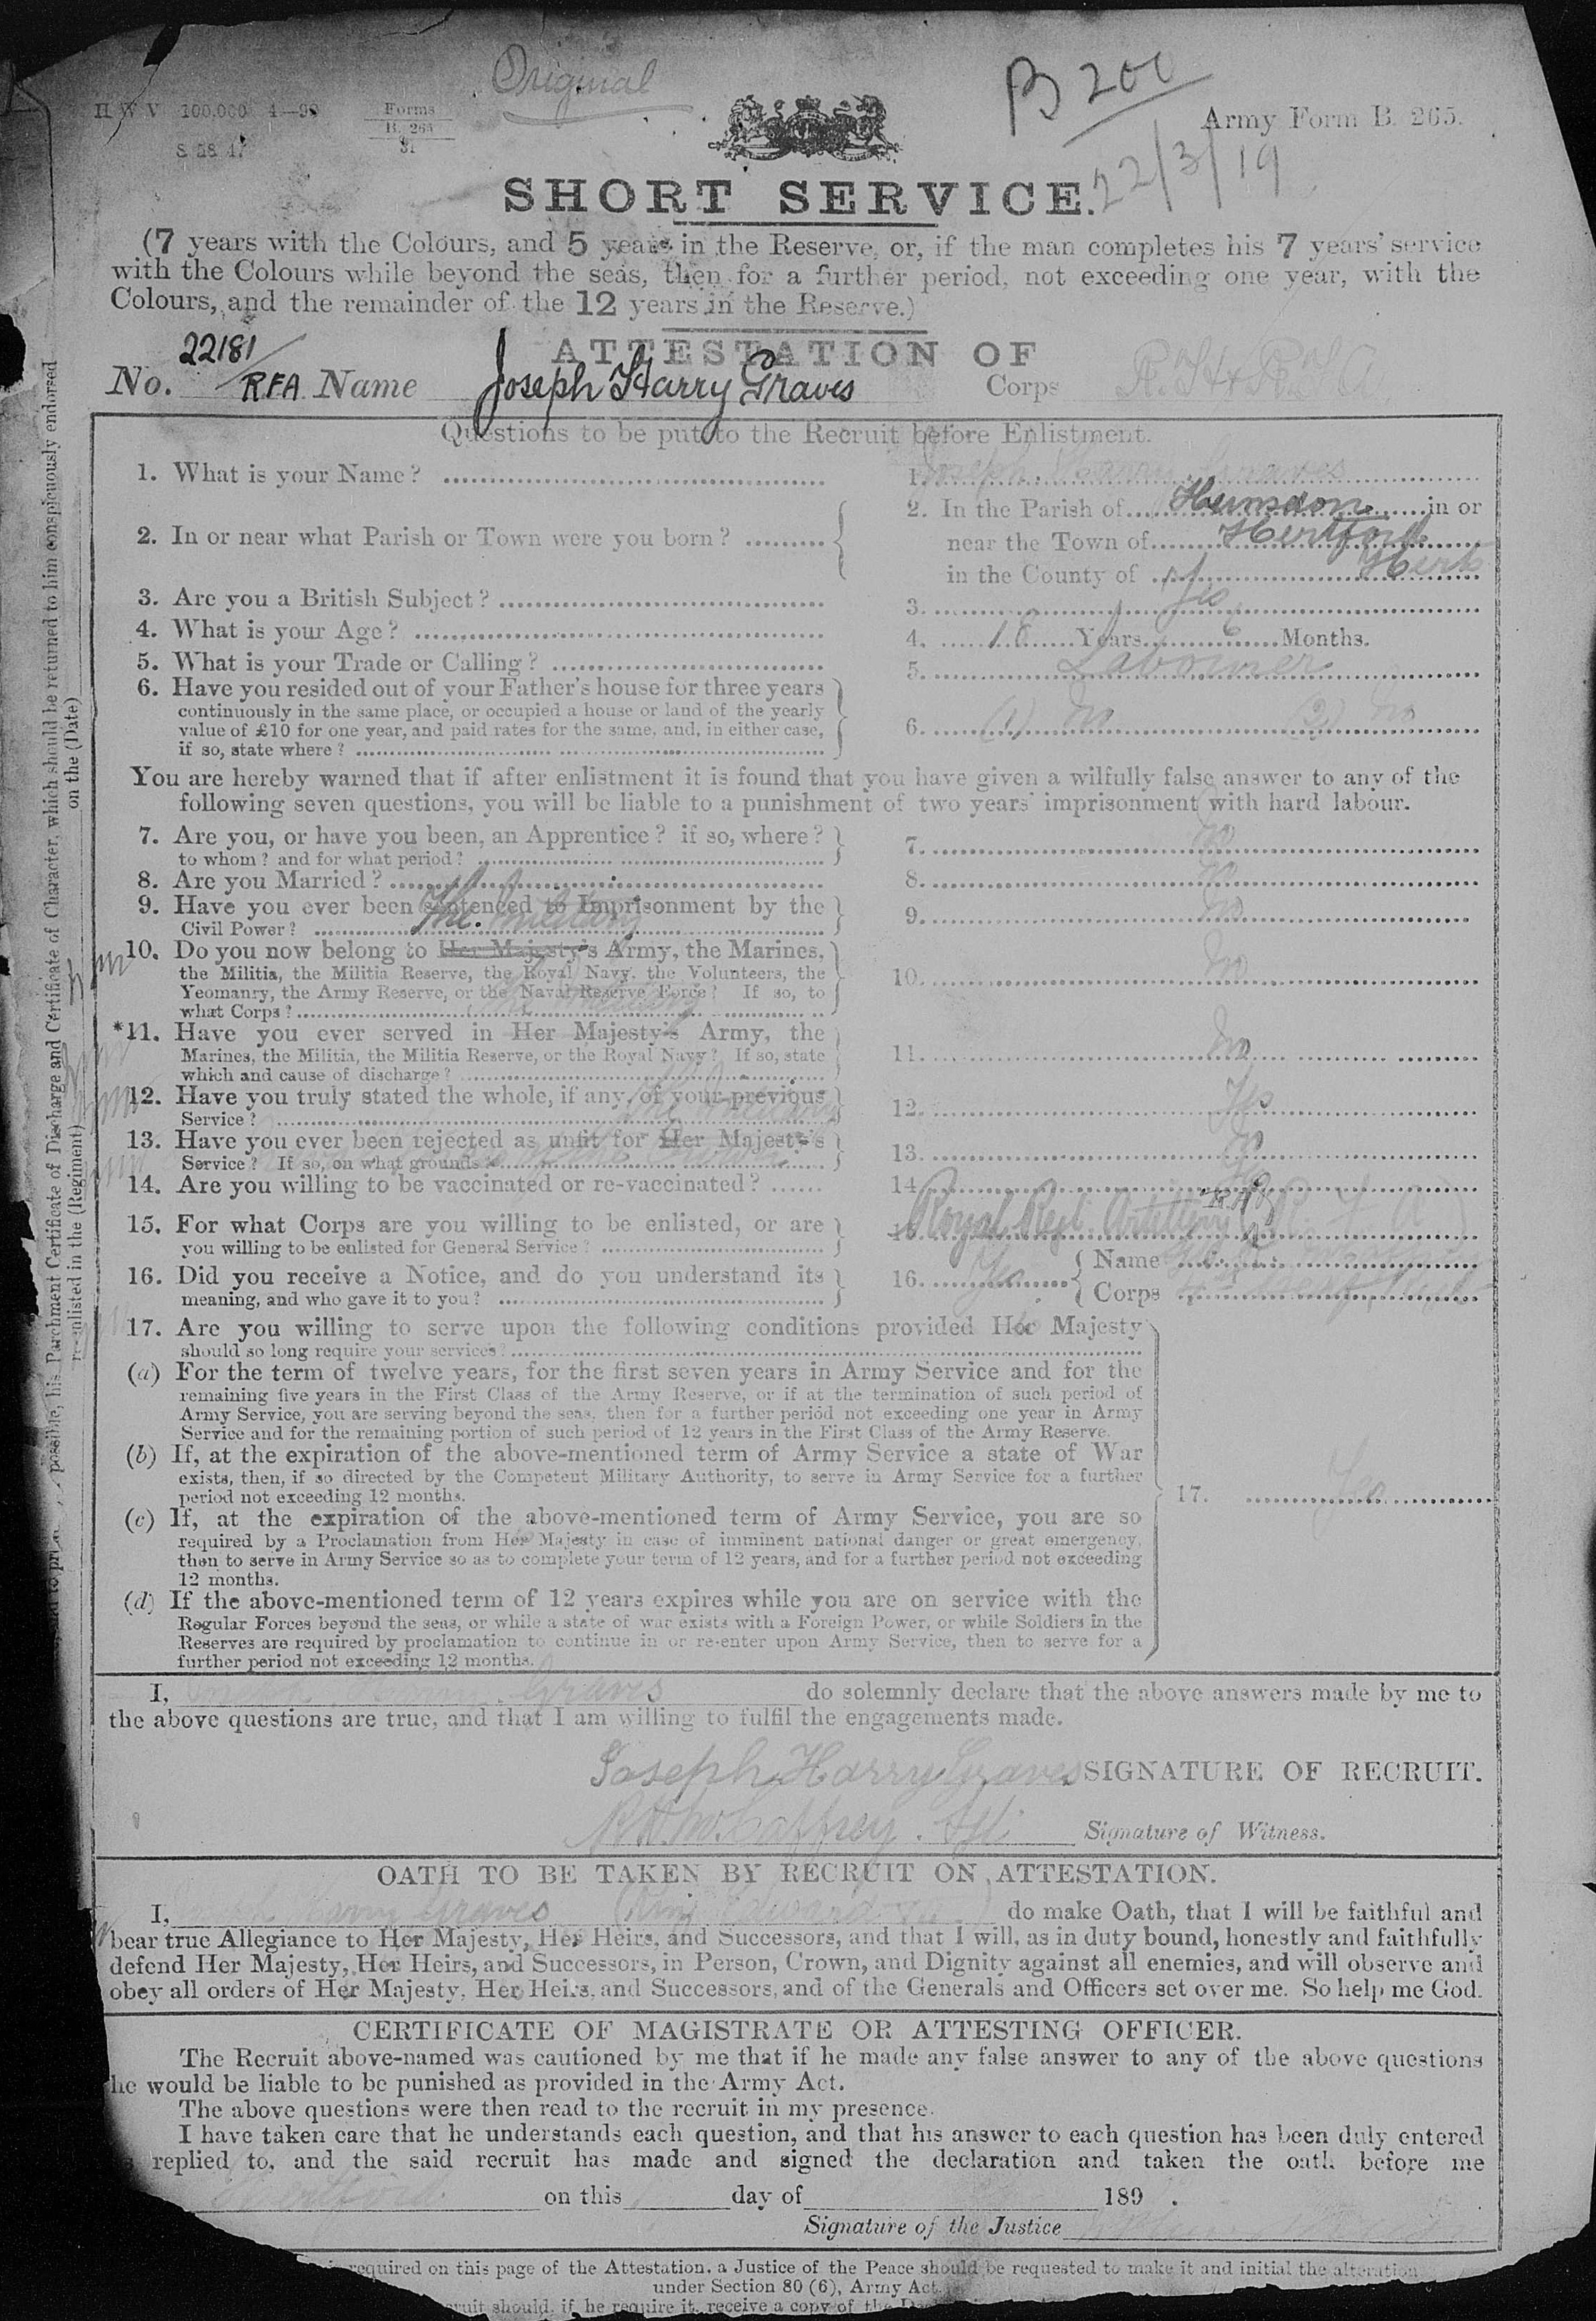 Original
B 200
H W V 100,000 4—99 Forms B. 265 31
Army Form B. 265.
22/3/19
SHORT SERVICE.
(7 years with the Colours, and 5 years in the Reserve, or, if the man completes his 7 years' service
with the Colours while beyond the seas, then for a further period, not exceeding one year, with the
Colours, and the remainder of the 12 years in the Reserve.)
ATTESTATION OF
No. 22181/RFA Name Joseph Harry Graves Corps
Questions to be put to the Recruit before Enlistment.
1. What is your Name? 1. Joseph Harry Graves
2. In or near what Parish or Town were you born? 2. In the Parish of Hunsdon in or
near the Town of Hertford
in the County of Herts
3. Are you a British Subject? 3. Yes
4. What is your Age? 4. 18 Years 6 Months.
5. What is your Trade or Calling? 5. Labourer
6. Have you resided out of your Father's house for three years
continuously in the same place, or occupied a house or land of the yearly
value of £10 for one year, and paid rates for the same, and, in either case,
if so, state where? 6. (1) No (2) No
You are hereby warned that if after enlistment it is found that you have given a wilfully false answer to any of the
following seven questions, you will be liable to a punishment of two years' imprisonment with hard labour.
7. Are you, or have you been, an Apprentice? if so, where?
to whom? and for what period? 7. No
8. Are you Married? 8. No
9. Have you ever been sentenced to Imprisonment by the
Civil Power? 9. No
The Military
10. Do you now belong to Her Majesty's Army, the Marines,
the Militia, the Militia Reserve, the Royal Navy, the Volunteers, the
Yeomanry, the Army Reserve, or the Naval Reserve Force? If so, to
what Corps? 10. No
*11. Have you ever served in Her Majesty's Army, the
Marines, the Militia, the Militia Reserve, or the Royal Navy? If so, state
which and cause of discharge? 11. No
12. Have you truly stated the whole, if any, of your previous
Service? 12. Yes
13. Have you ever been rejected as unfit for Her Majesty's
Service? If so, on what grounds? 13. No
14. Are you willing to be vaccinated or re-vaccinated? 14.
15. For what Corps are you willing to be enlisted, or are
you willing to be enlisted for General Service? 15. Royal Regt. Artillery (R. F. A)
16. Did you receive a Notice, and do you understand its
meaning, and who gave it to you? 16. Yes Name
Corps
17. Are you willing to serve upon the following conditions provided Her Majesty
should so long require your services?
(a) For the term of twelve years, for the first seven years in Army Service and for the
remaining five years in the First Class of the Army Reserve, or if at the termination of such period of
Army Service, you are serving beyond the seas, then for a further period not exceeding one year in Army
Service and for the remaining portion of such period of 12 years in the First Class of the Army Reserve.
(b) If, at the expiration of the above-mentioned term of Army Service a state of War
exists, then, if so directed by the Competent Military Authority, to serve in Army Service for a further
period not exceeding 12 months.
17. Yes
(c) If, at the expiration of the above-mentioned term of Army Service, you are so
required by a Proclamation from Her Majesty in case of imminent national danger or great emergency,
then to serve in Army Service so as to complete your term of 12 years, and for a further period not exceeding
12 months.
(d) If the above-mentioned term of 12 years expires while you are on service with the
Regular Forces beyond the seas, or while a state of war exists with a Foreign Power, or while Soldiers in the
Reserves are required by proclamation to continue in or re-enter upon Army Service, then to serve for a
further period not exceeding 12 months.
I, Joseph Harry Graves do solemnly declare that the above answers made by me to
the above questions are true, and that I am willing to fulfil the engagements made.
Joseph Harry Graves SIGNATURE OF RECRUIT.
Signature of Witness.
OATH TO BE TAKEN BY RECRUIT ON ATTESTATION.
I, Joseph Harry Graves (King Edward VII) do make Oath, that I will be faithful and
bear true Allegiance to Her Majesty, Her Heirs, and Successors, and that I will, as in duty bound, honestly and faithfully
defend Her Majesty, Her Heirs, and Successors, in Person, Crown, and Dignity against all enemies, and will observe and
obey all orders of Her Majesty, Her Heirs, and Successors, and of the Generals and Officers set over me. So help me God.
CERTIFICATE OF MAGISTRATE OR ATTESTING OFFICER.
The Recruit above-named was cautioned by me that if he made any false answer to any of the above questions
he would be liable to be punished as provided in the Army Act.
The above questions were then read to the recruit in my presence.
I have taken care that he understands each question, and that his answer to each question has been duly entered
replied to, and the said recruit has made and signed the declaration and taken the oath before me
on this day of 189 .
Signature of the Justice
required on this page of the Attestation, a Justice of the Peace should be requested to make it and initial the alteration
under Section 80 (6), Army Act.
ruit should, if he require it, receive a copy of the
possible, his Parchment Certificate of Discharge and Certificate of Character, which should be returned to him conspicuously endorsed
re-enlisted in the (Regiment) on the (Date)